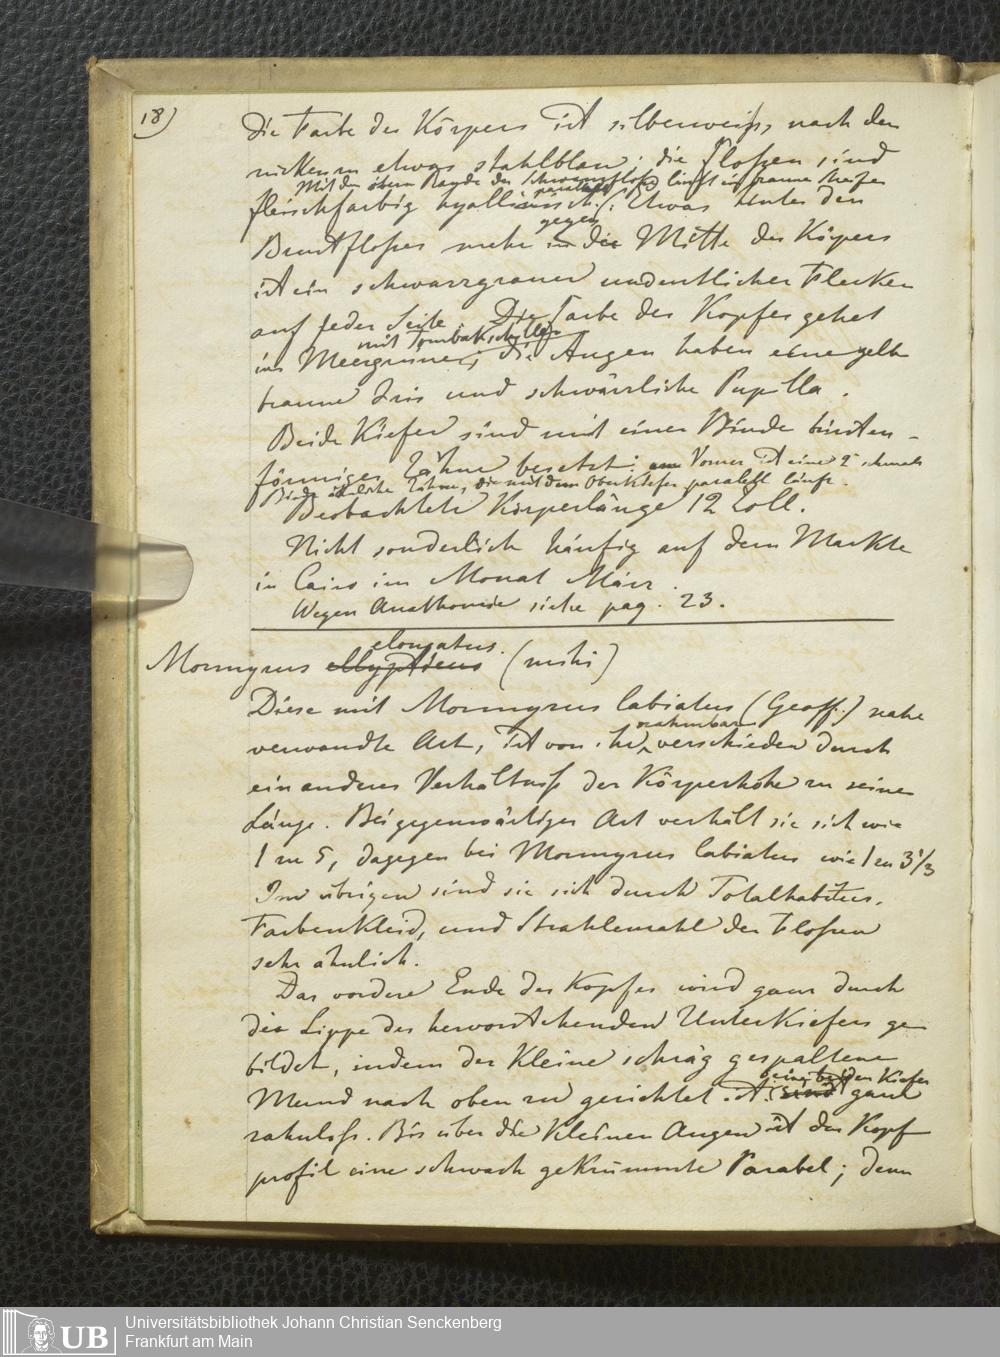 18)
Die Farbe des Körpers ist silberweiß, nach den
rücken zu etwas stahlblau; die Floßen sind
Mit dem obern Rande der Schwanzfloße parallel läuft ein graune Streifen
fleischfarbig hyallinisch. Etwas hinter den
Brustfloßen mehr gegen die Mitte des Köpers
ist ein schwarzgrauer undeutlicher Flecken
auf jeder Seite. Die Farbe des Kopfes gehet
mit Tombakschiller
ins Meergrüne; die Augen haben eine gelb
braune Iris und schwärzliche Pupilla.
Beide Kiefer sind mit einer Binde bürsten-
förmiger Zähne besetzt: am Vomer ist eine 2" schmale
Binde ähnliche Zähne, die mit dem OberKiefer paralell läuft.
Beobachtete Körperlänge 12 Zoll.
Nicht sonderlich häufig auf dem Markte
in Cairo im Monat März.
Wegen Anathomie siehe pag. 23.
elongatus.
Mormyrus ellypticus (mihi)
Diese mit Mormyrus labiatus (Geoff.) nahe
verwandte Art, ist von ihr nahmbar verschieden durch
ein anderes Verhältniß der Körperhöhe zu seiner
Länge. Bei gegenwärtiger Art verhält sie sich wie
1 zu 5, dagegen bei Mormyrus labiatus wie 1 zu 3 1/3
Im übrigen sind sie sich durch Totalhabitus,
FarbenKleid, und Strahlenzahl der Floßen
sehr ähnlich.
Das vordere Ende des Kopfes wird ganz durch
die Lippe des hervorstehenden UnterKiefers ge-
bildet, indem der Kleine schräg gespaltene
Mund nach oben zu gerichtet ist; seine beiden Kiefer sind ganz
zahnloß. Bis über die Kleinen Augen ist das Kopf
profil eine schwach geKrümmte Parabel; denn
Universitätsbibliothek Johann Christian Senckenberg
UB
Frankfurt am Main